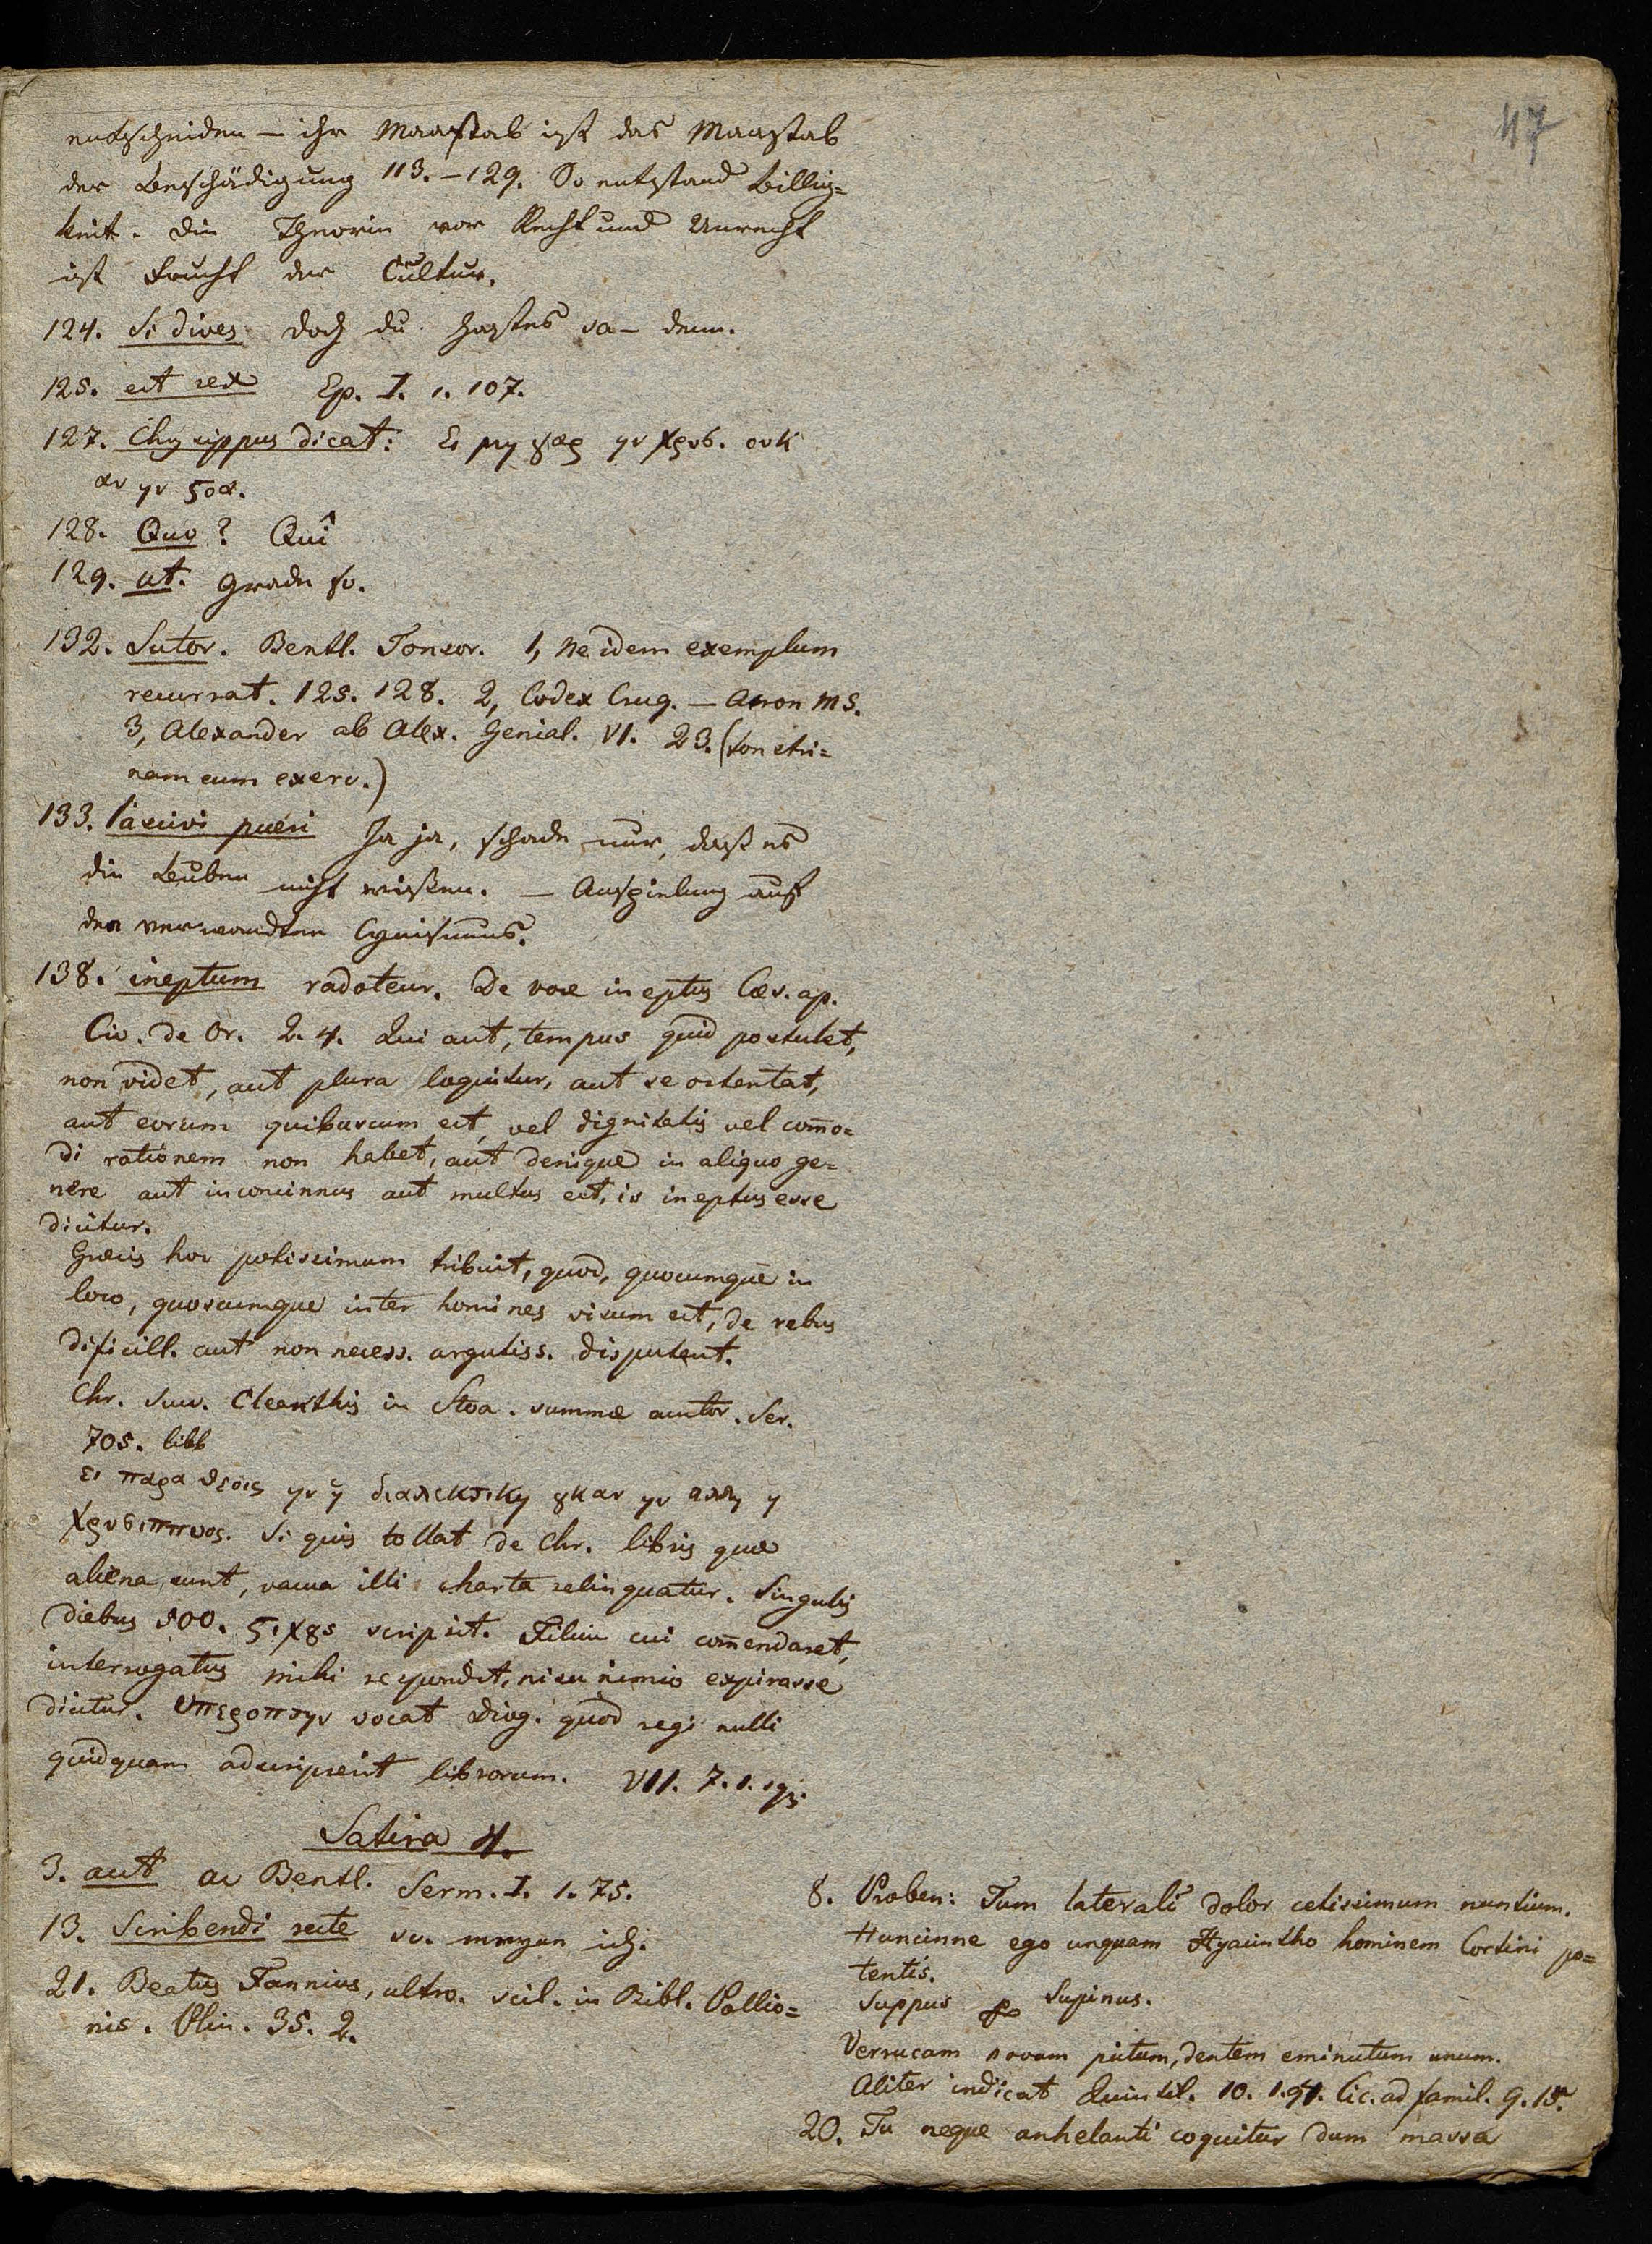 47
entscheiden — ihr Maasstab ist das Maasstab
der Beschädigung 113.–129. So entstand Billig=
keit. Die Theorie von Recht und Unrecht
ist Frucht der Cultur.
124. Si dives doch du hastes ja – denn.
125. est rex Ep. I. 1. 107.
127. Chrysippus dicat: Ει μη γαρ ην Χρυσ. ουκ
αν ην ϛοα.
128. Quo? Quî
129. ut. Grade so.
132. Sutor. Bentl. Tonsor. 1, Ne idem exemplum
recurrat. 125. 128. 2, Codex Cruq. — Acron MS.
3, Alexander ab Alex. Genial. VI. 23. (tonstri=
nam eum exerc.)
133. lascivi pueri Ja ja, schade nur, dass es
die Buben nicht wissen. — Anspielung auf
den verwandten Cynismus.
138. ineptum radoteur. De voce ineptus Cæs. ap.
Cic. de Or. 2. 4. Qui aut, tempus quid postulet,
non videt, aut plura loquitur, aut se ostentat,
aut eorum quibuscum est, vel dignitatis vel com̄o=
di rationem non habet, aut denique in aliquo ge=
nere aut inconcinnus aut multus est, is ineptus esse
dicitur.
Græcis hoc potissimum tribuit, quod, quocumque in
loco, quoscumque inter homines visum est, de rebus
dificill. aut non necess. argutiss. disputent.
Chr. succ. Cleanthis in Stoa. summæ auctor. Scr.
705. libb
ει παρα θεοις ην η διαλεκτικη ȣκ αν ην αλλη η
Χρυσιππειος. Si quis tollat de Chr. libris quæ
aliena sunt, vacua illi charta relinquatur. Singulis
diebus 500. ϛιχȣς scripsit. Filium cui com̄endaret,
interrogatus mihi respondit, risu nimio expirasse
dicitur. Υπεροπτην vocat Diog. quod regi nulli
quidquam adscripserit librorum. VII. 7. 1. sqq.
Satira 4.
3. aut ac Bentl. Serm. I. 1. 75.
13. Scribendi recte sc. meyne ich.
21. Beatus Fannius, ultro. scil. in Bibl. Pollio=
nis. Plin. 35. 2.
8. Proben: Tum laterali dolor cetissimum nuntium.
Huncinne ego unquam Hyacintho hominem Cortini po=
tentis.
Suppus pro Supinus.
Verrucam novam pictum, dentem eminutum unum.
Aliter indicat Quinctil. 10. 1. 94. Cic. ad famil. 9. 15.
20. Tu neque anhelanti coquitur dum massa